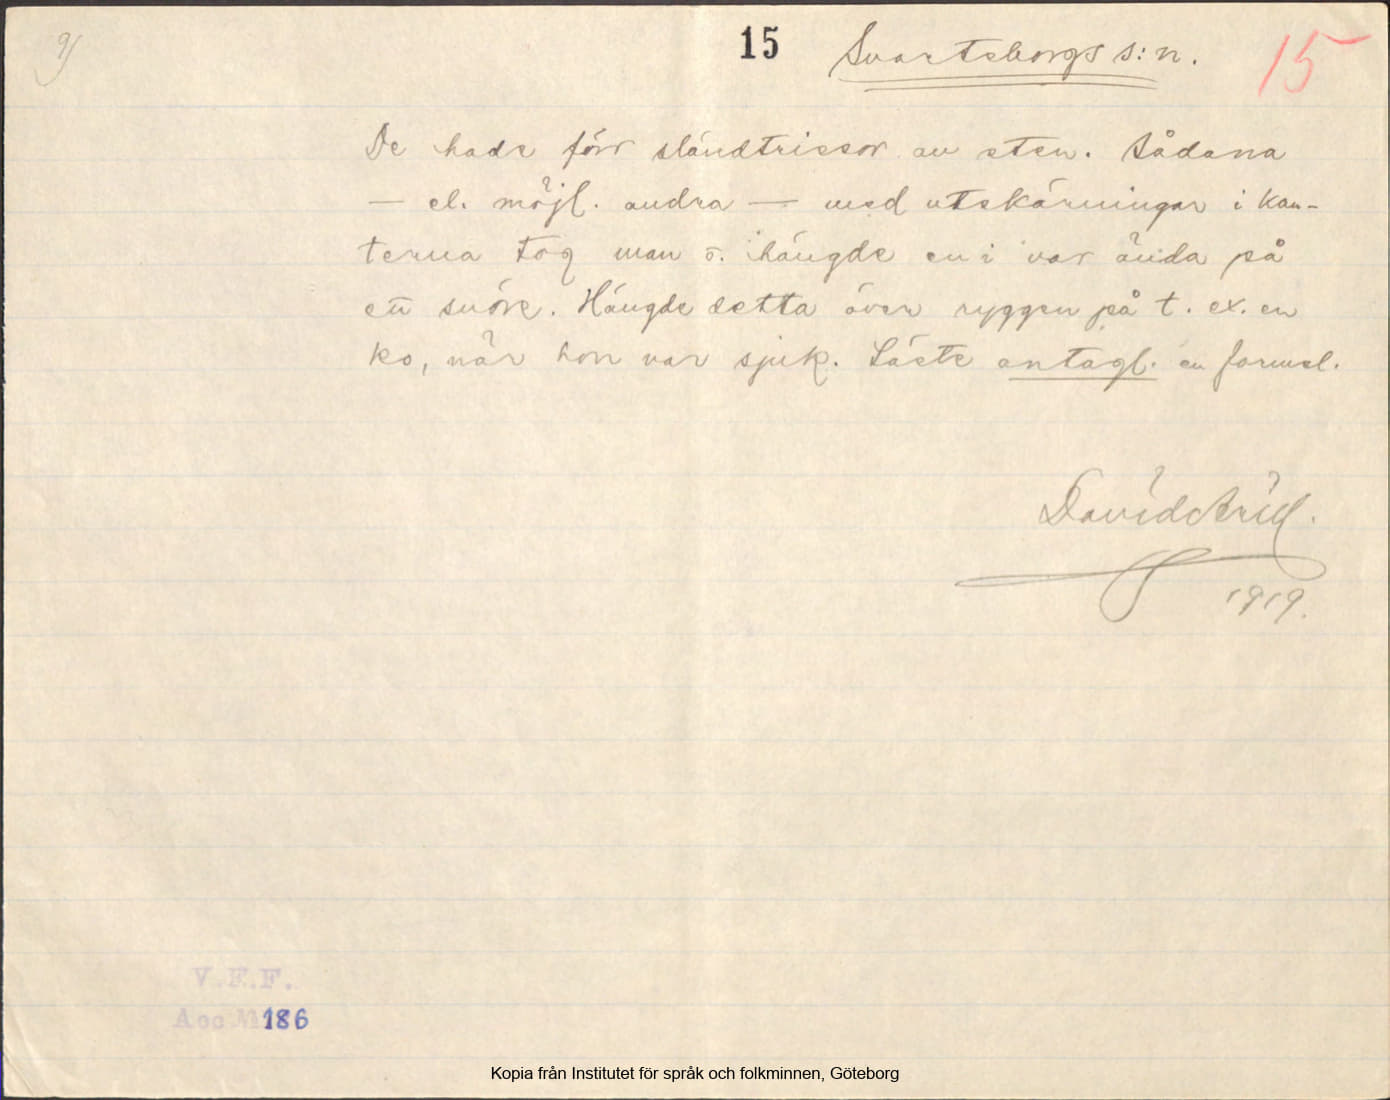 9)
15 Svarteborgs s:n. 15
De hade förr sländtrissor av sten. Sådana
— el. möjl. andra — med utskärningar i kan-
terna tog man o. hängde en i var ända på
ett snöre. Hängde detta över ryggen på t. ex. en
ko, när hon var sjuk. Läste antagl. en formel.
David Arill.
1919.
V.F.F.
Acc № 186
Kopia från Institutet för språk och folkminnen, Göteborg